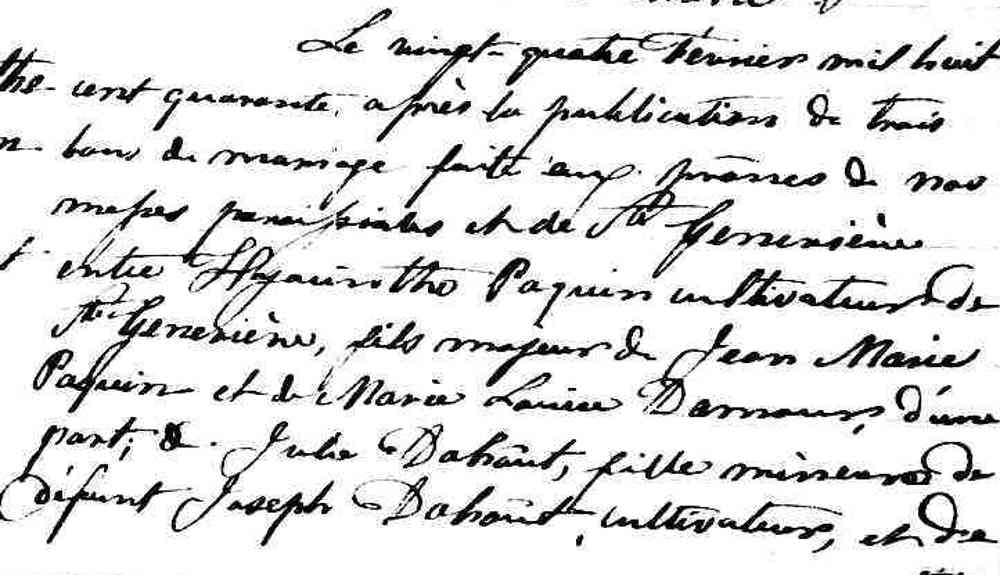 Le vingt-quatre Février mil huit
cent quarante, après la publication de trois
bans de mariage faite aux prônes de nos
messes paroissiales et de Ste Geneviève
entre Hyacinthe Paquin cultivateur de
Ste Geneviève, fils majeur de Jean Marie
Paquin et de Marie Louise Damours, d'une
part; & Julie Dahoût, fille mineure de
défunt Joseph Dahoût, cultivateur, et de